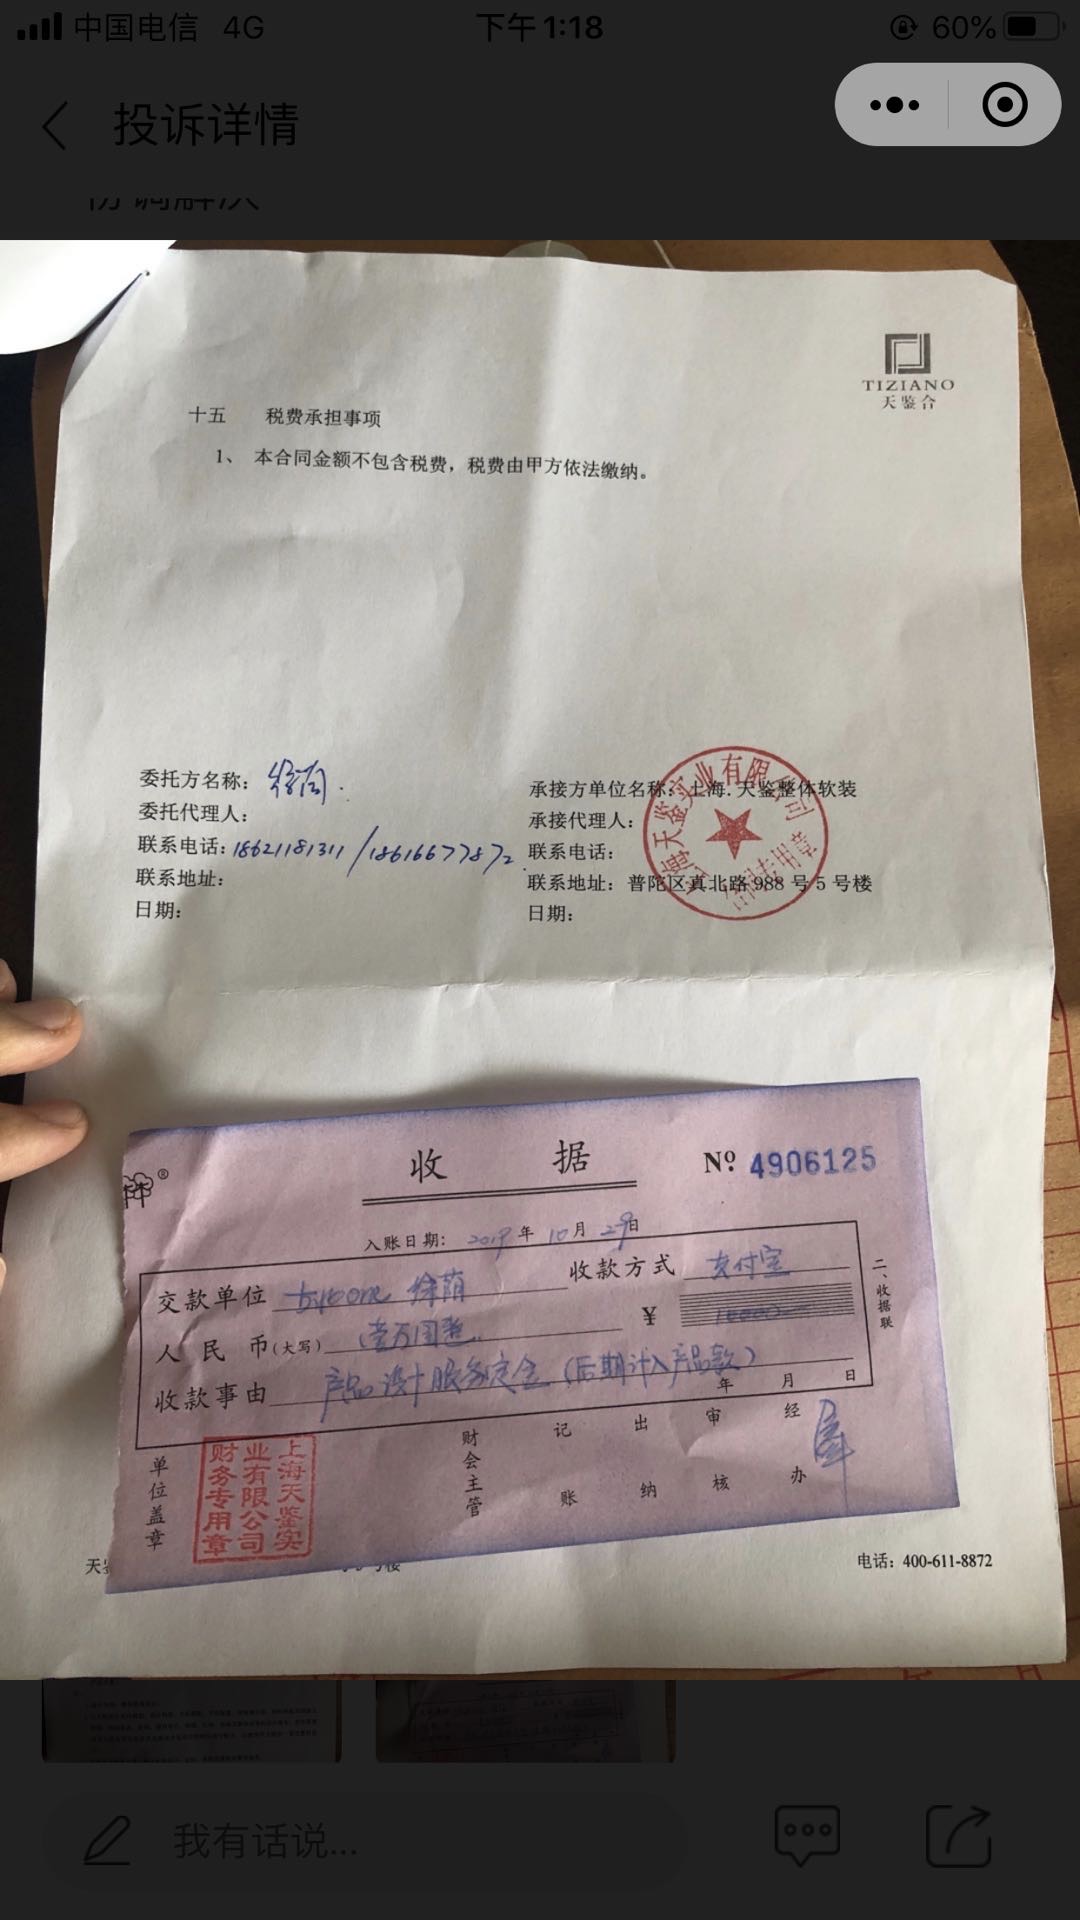 中国电信 4G 下午1:18 60%
投诉详情
协调解决
TIZIANO
天鉴合
十五 税费承担事项
1、本合同金额不包含税费，税费由甲方依法缴纳。
委托方名称：
委托代理人：
联系电话：18621181311/18616677872
联系地址：
日期：
承接方单位名称：上海.天鉴整体软装
承接代理人：
联系电话：
联系地址：普陀区真北路988号5号楼
日期：
上海天鉴实业有限公司
合同专用章
收据
№ 4906125
入账日期：2019年10月29日
交款单位 徐荫 收款方式 支付宝
人民币(大写) 壹万圆整 ¥ 10000
收款事由 产品设计服务定金（后期计入产品款）
年 月 日
二、收据联
单位盖章 财会主管 记账 出纳 审核 经办
上海天鉴实业有限公司财务专用章
天鉴 号楼 电话：400-611-8872
我有话说...